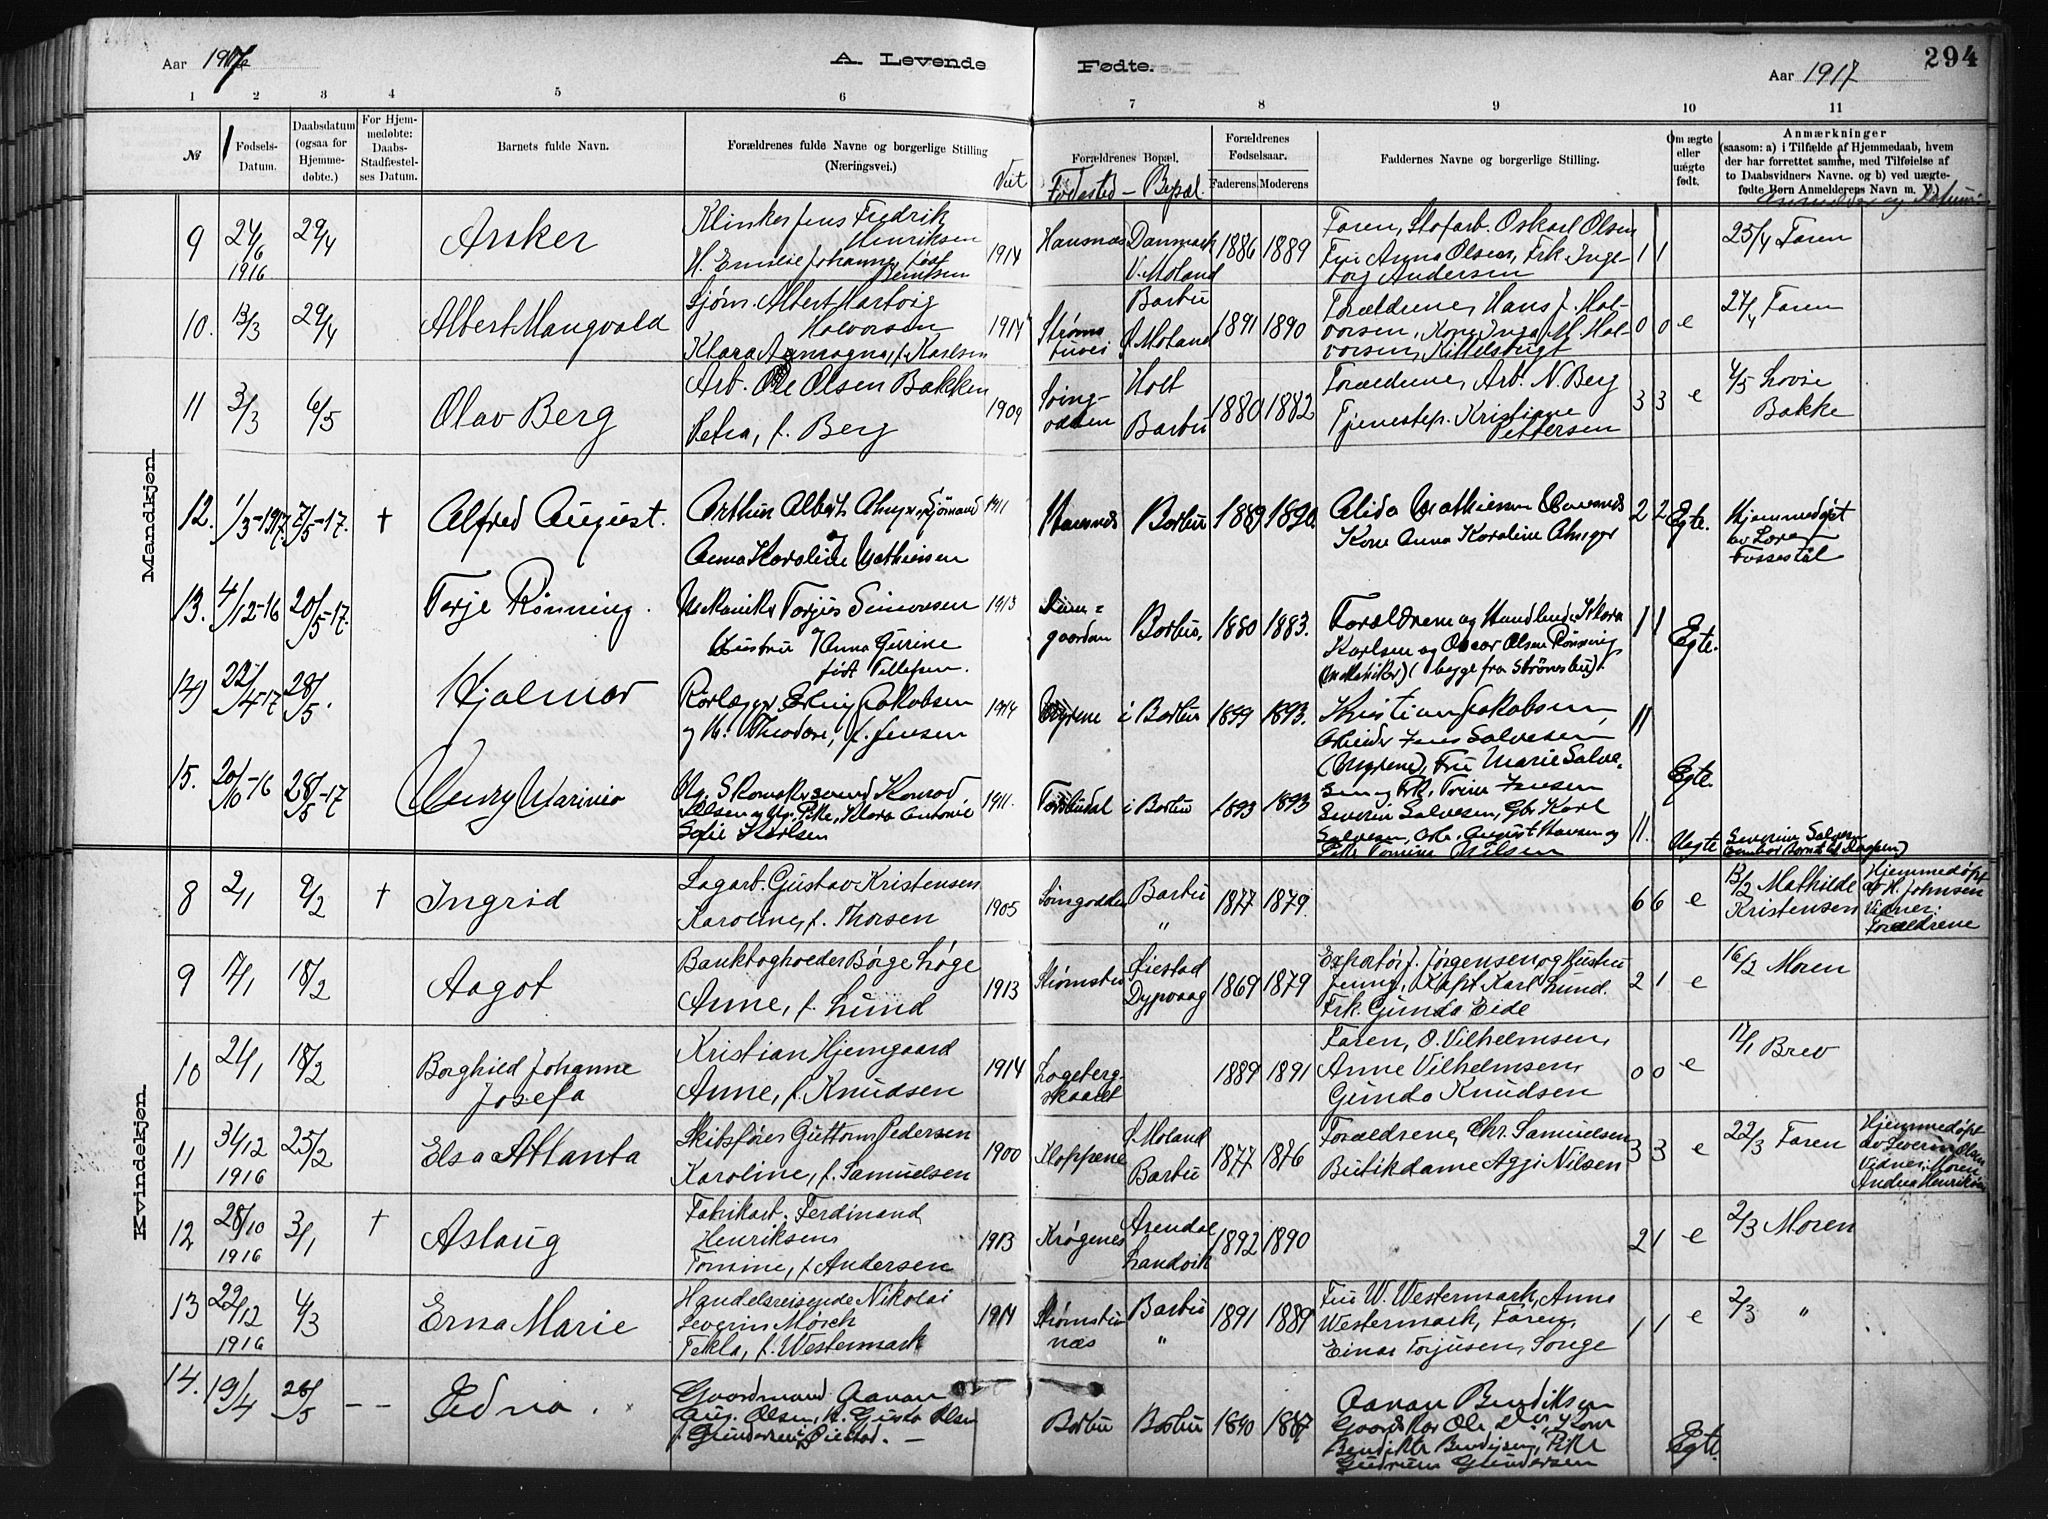 Aar 1917
A. Levende
Fødte.
Aar 1917
294
1 2 3 4 5 6 7 8 9 10 11
№
Fødsels-
Datum.
Daabsdatum
(ogsaa for
Hjemme-
døbte.)
For Hjem-
medøbte:
Daabs-
Stadfæstel-
ses Datum.
Barnets fulde Navn.
Forældrenes fulde Navne og borgerlige Stilling
(Næringsvei.)
Viet
Forældrenes Bopæl.
Fødested – Bopæl.
Forældrenes
Fødselsaar.
Faderens. Moderens
Faddernes Navne og borgerlige Stilling.
Om ægte
eller
uægte
født.
Anmærkninger
(saasom: a) i Tilfælde af Hjemmedaab, hvem
der har forrettet samme, med Tilføielse af
to Daabsvidners Navne. og b) ved uægte-
fødte Børn Anmelderens Navn m. V.)
Mandkjøn
9 24/6 1916 29/4 Anker
Klinker Jens Fredrik
Henriksen
H. Emelie Johanne, født
Berntsen
1914 Hansnæs Danmark
V. Moland
1886 1889
Faren, Stofarb. Oskarl Olsen
Fru Anna Olsen, Frk. Inge-
borg Andersen
1 1 25/4 Faren
10. 13/3 29/4 Albert Mangvald
Sjøm. Albert Hartvig
Halvorsen
Klara Asmagna, f. Karlsen
1914 Strøms
buvei
Barbu
Ø. Moland
1891 1890
Forældrene, Hans J. Hal-
vorsen, Kone Inga M. Hal-
vorsen, Kittelsbugt
0 0 e 27/4 Faren
11 3/3 6/5 Olav Berg
Arb. Ole Olsen Bakken
Petra, f. Berg
1909 Søing-
odden
Holt
Barbu
1880 1882
Forældrene, Arb. N. Berg
Tjenestep. Kristiane
Pettersen
3 3 e 4/5 Lovise
Bakke
12. 1/3-1917. 7/5-17. † Alfred August.
Anna Karoline Mathiesen
1911 Barbu 1889 1890
Kone Anna Karoline
2 2 Egte. Hjemmedøpt
av
Fossestøl
13. 4/12-16 20/5-17. Terje Rønning.
Mekaniker Torjus Simonsen
Hustru Anna Gurine
født Tellefsen.
1913 Barbu, 1880 1883.
Karlsen og Oscar Olsen Rønning
(Mekaniker) (begge fra Strømsbu).
1 1 Egte.
14) 22/4 17 28/5. Hjalmar
Rørlægger Erling Jakobsen
og H. Theodore, f. Jensen
1914 Myrene i Barbu 1889 1893.
Kristian Jakobsen,
Arbeider Jens Salvesen
(Myrene), Fru Marie Salve-
sen og Frk. Trine Jensen
11 Egte.
15. 20/10-16 28/5-17 Henry Marinio
Ug. Skomakersvend Konrad
Olsen og Ug. Pike, Klara Antonie
Sofie Karlsen
1911. i Barbu 1893 1893
Severin Salvesen, Gbr. Karl
Salvesen, Arb. August Hansen og
Pike Tomine Nilsen
11. Uegte Severin Salvesen
Kvindekjøn
8 2/1 9/2 † Ingrid
Lagarb. Gustav Kristensen
Karoline, f. Thorsen
1905 Søingodden Barbu
"
1877 1879.
6 6 e 13/2 Mathilde
Kristensen
Hjemmedøpt
af K. Johnsen
Vidner:
Forældrene
9 17/1 18/2 Aagot
Bankbogholder Børge Løge
Anne, f. Lund
1913 Strømsbu Øiestad
Dypvaag
1869 1879
Exportør J. Jørgensen og Hustru
Jenny, Kapt Karl Lund.
Frk. Gunda Eide
2 1 e 16/2 Moren
10 21/1 18/2 Borghild Johanne
Josefa
Kristian Hjemgaard
Anne, f. Knudsen
1914 Logeberg-
skaaret
1889 1891
Faren, O. Vilhelmsen,
Anne Vilhelmsen,
Gunda Knudsen
0 0 e 17/1 Brev
11 31/12 1916 25/2 Elsa Atlanta
Skibsfører Guttorm Pedersen
Karoline, f. Samuelsen
1900 Kloppene Ø. Moland
Barbu
1877 1876
Forældrene, Chr. Samuelsen
Butikdame Aggi Nilsen
3 3 e 22/3 Faren
Hjemmedøpt
av Severin Olsen
Vidner: Moren
Andrea Henriksen
12 28/10 1916 3/1 † Aslaug
Fabrikarb. Ferdinand
Henriksen
Tomine, f. Andersen
1913 Krøgenes Arendal
Landvik
1892 1890
2 1 e 2/3 Moren
13 22/12 1916 4/3 Erna Marie
Handelsreisende Nikolai
Severin Mørch
Tekla, f. Westermark
1914 Strømsbu
næs
Barbu
"
1891 1889
Fru W. Westermark, Anna
Westermark, Faren,
Einar Torjusen, Songe
1 1 e 2/3 "
14. 19/4 28/5 – – Edna.
Gaardmand Aanan
Aug. Olsen, H. Gusta Olsen
f. Gundersen, Øiestad. –
Barbu Barbu 1890 1887
Aanan Bendiksen
Gudrun Gundersen
Egte.